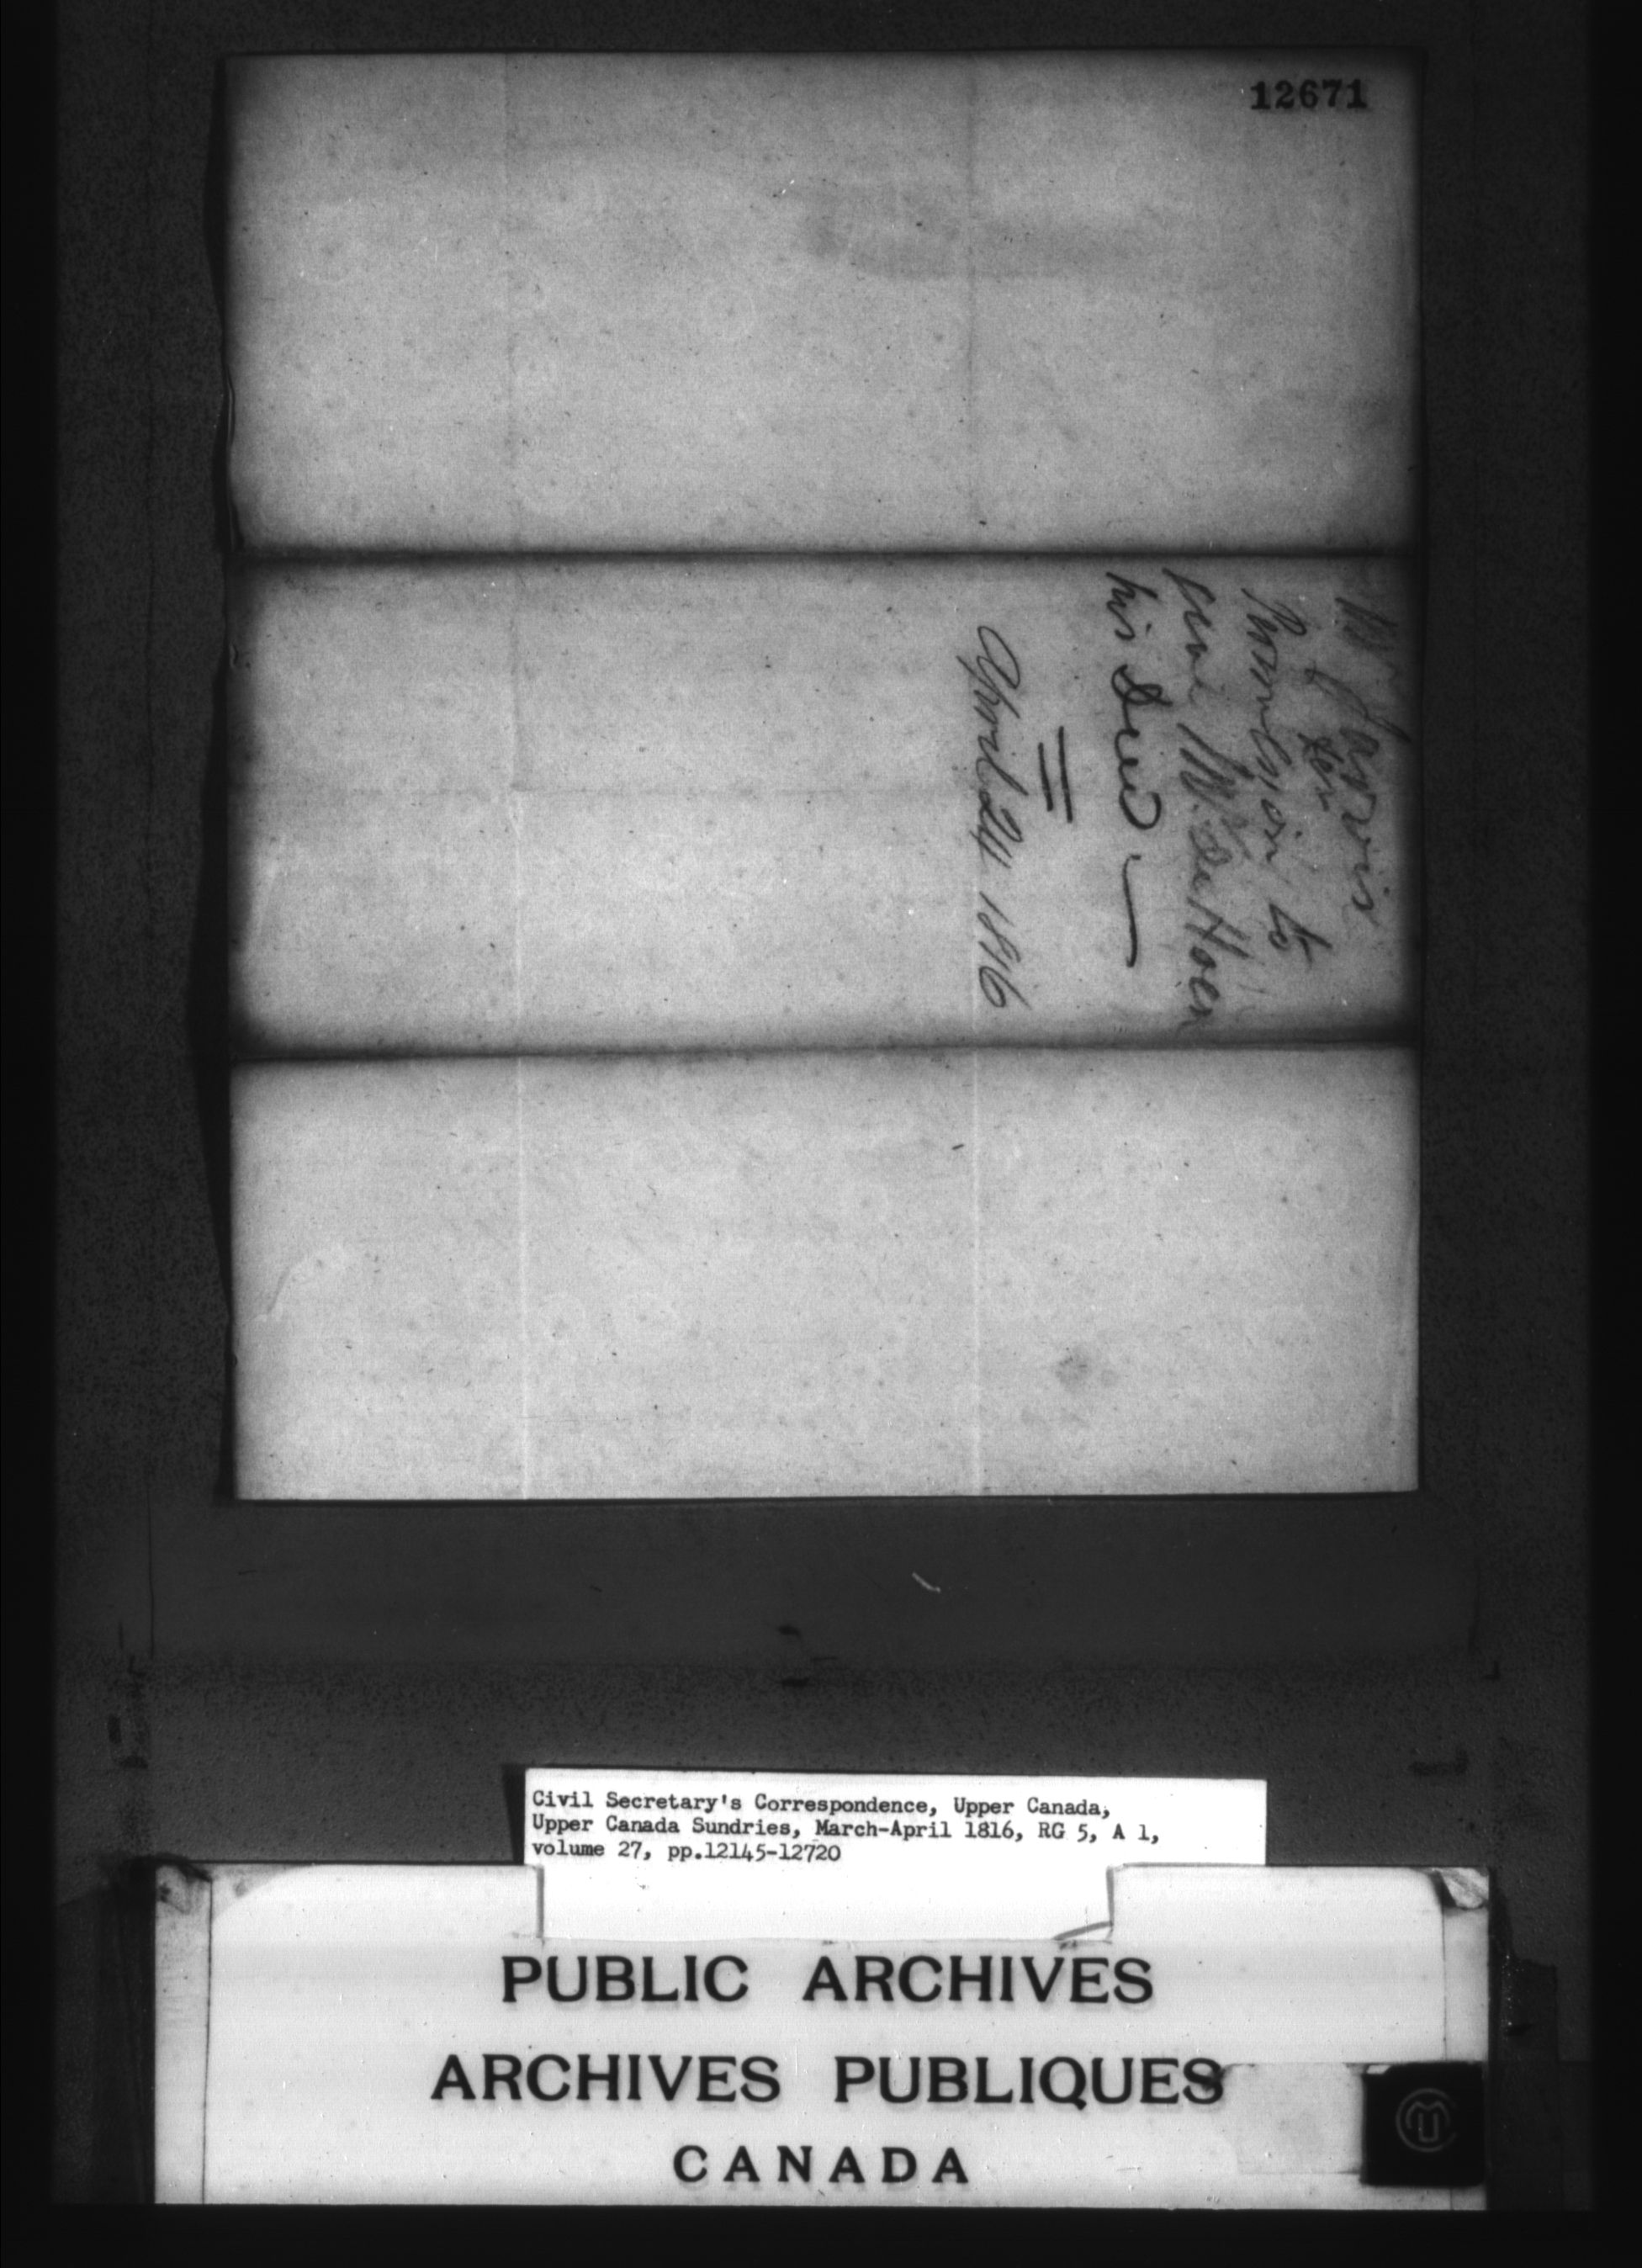 12671
Mr Jarvis
for
Permission to
send Mr De Hoen
his Deed —
April 24 1816
Civil Secretary's Correspondence, Upper Canada,
Upper Canada Sundries, March-April 1816, RG 5, A 1,
volume 27, pp.12145-12720
PUBLIC ARCHIVES
ARCHIVES PUBLIQUES
CANADA